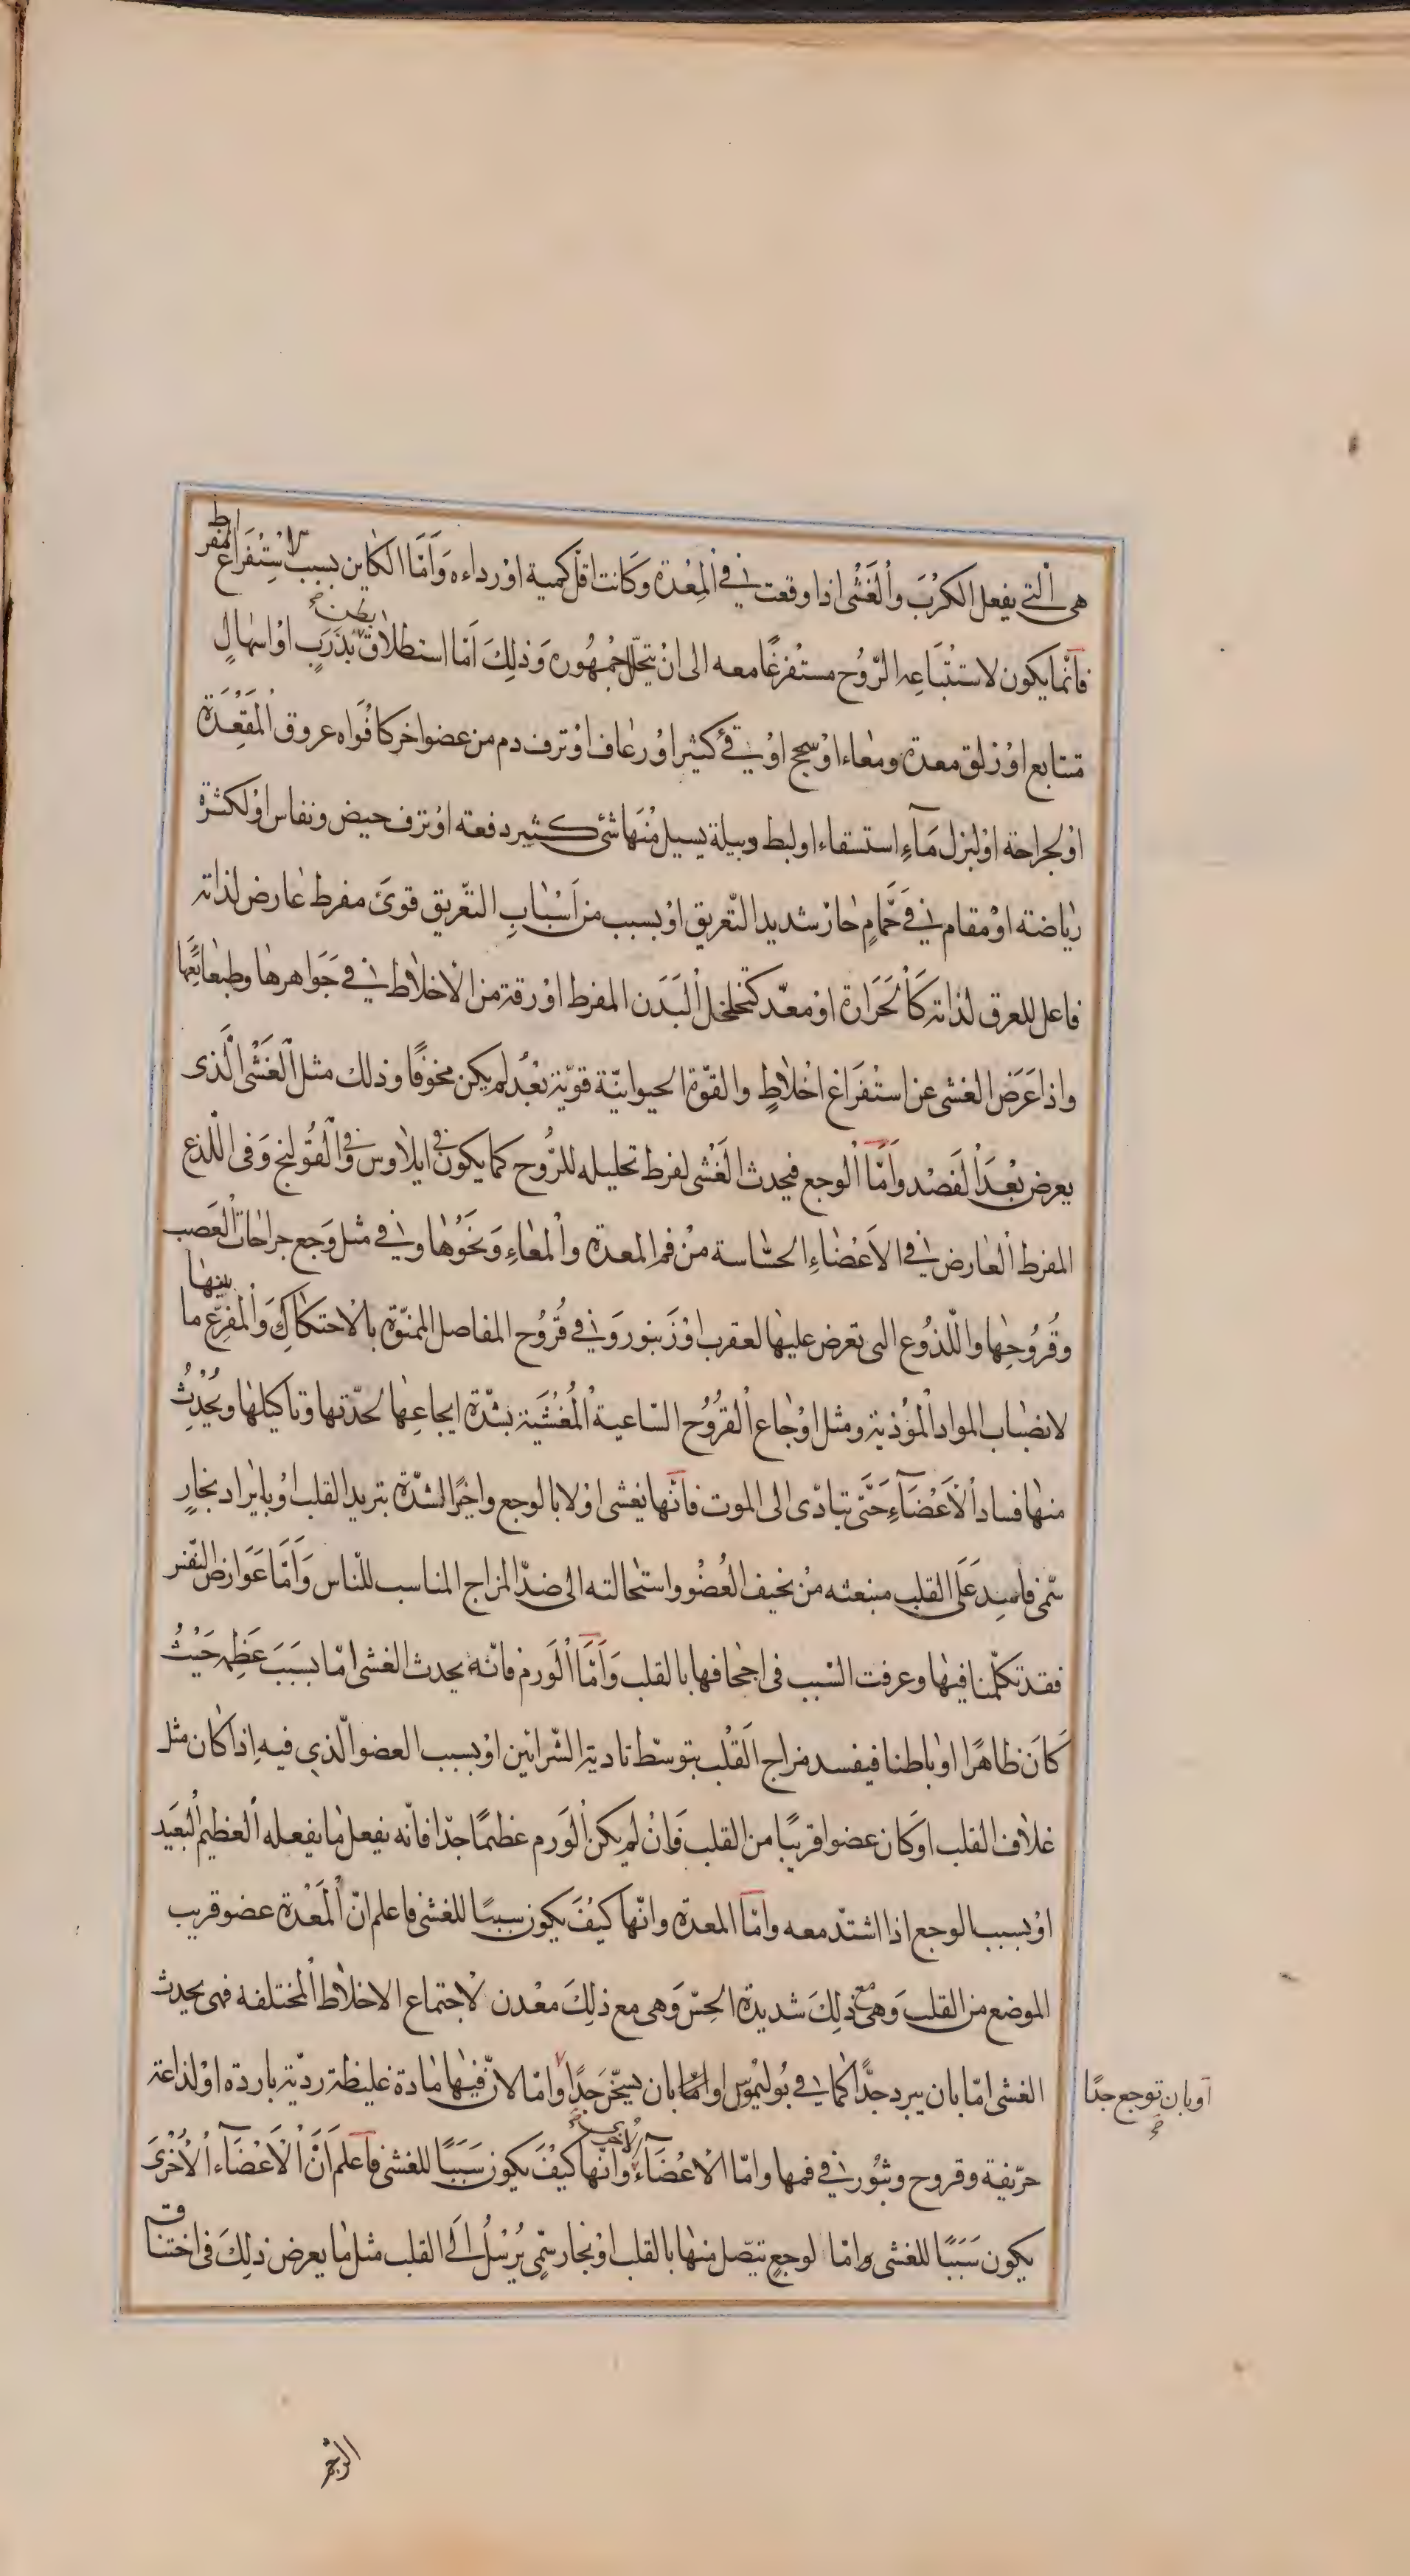 هى الّتى يفعل الكرْبَ والْغَشْى اذا وقعت فى الْمِعْدة وكَانت اقلّ كمية اوْ رداءه وَاَمَّا الكاين بسبب لاسْتِفْرَاغ المفرط
فَاَنّما يكون لاستتْبَاعِه الرّوُح مستفْرغًا معه الى انْ يتحلّل جُمْهُوره وَذلِكَ اَمّا استطلاق بطن بذَرَبٍ اوْ اسهالٍ
متتابع اوْ زلق معدة ومعاء اوْ سحج اوْ قئ كثير اوْ رعاف اوْ نزف دم من عضو اخر كافْوَاه عروق الْمَقْعَدة
اوْ لجراحة اوْ لبزل مَآءِ استسقاء او لبط دبيلة يسيل منْهَا شئ كثير دفعته اوْ نزف حيض ونفاس اوْ لكثرة
رياضته اوْ مقام فى حَمَّامٍ حارّ شديد التّعريق اوْ بسبب من اَسْبَابِ التّعريق قوىّ مفرط عارض لذاته
فاعل للعرق لذاته كَالْحَرَارة اوْ معدّ كتخلخل الْبَدَن المفرط اوْ رقة من الاخلاط فى جَوَاهرها وطبعائعها
واذا عَرَض الغشى عن استفْرَاغ اخْلاطٍ والقوّة الحيوانيّة قويّة بعْدُ لم يكن مخوفًا وذلك مثل الْغَشْى الّذى
يعرض بعْدَ الْفَصْد وَاَمّا الْوجع فيحدث الْغَشْى لفرط تحليله للرُّوح كما يكون فى ايلاوس وفى الْقُولنج وَفى اللّذع
المفرط الْعارض فى الاَعْضَاءِ الحسّاسة منْ فم المعدة والْمعاءِ وَنَحْوُها وفى مثل وَجع جراحات الْعَصب
وقُرُوحِها واللّذوُع التى تعرض عليها لعقرب اوْ زَنبور وَفى قُرُوح المفاصل الممنّوة بالاحتكاكِ وَالْمفرّع ما بينها
لانصباب المواد الْمُؤذية ومثل اوْجاع الْقرُوح السّاعية الْمُغْشَية بشدّة ايجاعِها لحدّتها وتاكيلها ويُحْدِثُ
منها فساد الْاَعْضَآءِ حَتَّى تبادّى الى الموت فانّها يغشى اوْلا بالوجع واخرًا لشدّة بتريد القلب اوْ بايْراد بخارٍ
سّمى فاسِدٍ عَلَى القلب منبعثه منْ نحيف الْعُضْو واستحالته الى ضدّ المزاج المناسب للنّاس وَاَمّا عَوَارض النّفس
فقد تكلّمنا فيها وعرفت السّبب فى اجحافها بالقلب وَاَمّا الْوَرم فانّه يحدث الغشى امّا بسَبَب عَظِمه حَيْثُ
كَانَ ظاهرًا او باطنا فيفسد مزاج الْقَلْب بتوسّط تادية الشّرائين اوْ بسبب العضو الّذى فيه اِذا كان مثل
غلاف القلب او كَان عضوا قريبًا من القلب فَاِنْ لم يكن الْوَرم عظيمًا جدّا فانّه يفعل ما يفعله الْعظيم الْبَعَيد
اوْ بسبب الوجع اذا اشتدّ معه وامّا المعدة وانّها كيْفَ يكون سببًا للغشى فاعلم انّ الْمَعْدة عضو قريب
الموضع من القلب وَهى مع ذلِكَ شديدة الحِسّ وَهى مع ذلِكَ معْدن لاجتماع الاخلاط الْمختلفه فهى يحدث
الغشى امّا بان يبرد جدًّا كما فى بُوليمُوس او امّا بان يسخّن جَدًّا وامّا لانّ فيها مادة غليظة رديّة بارده اوْ لذاعة
اَو بان توجع جدًا
حرّيفة وقروح وبثُور فى فمها وامّا الاعْضَآءُ الاخرى وانّها كيْفَ يكون سَبَبًا للغشى فاَعلَم اَنَّ الْاَعْضَآءَ الْاُخْرَى
يكون سَبَبًا للغشى وامّا لوجعٍ يتّصل منها بالقلب اوْ بخار سمّى يُرْسُلُ اِلَى القلب مثل ما يعرض ذلِكَ فى اختناق
الرحم